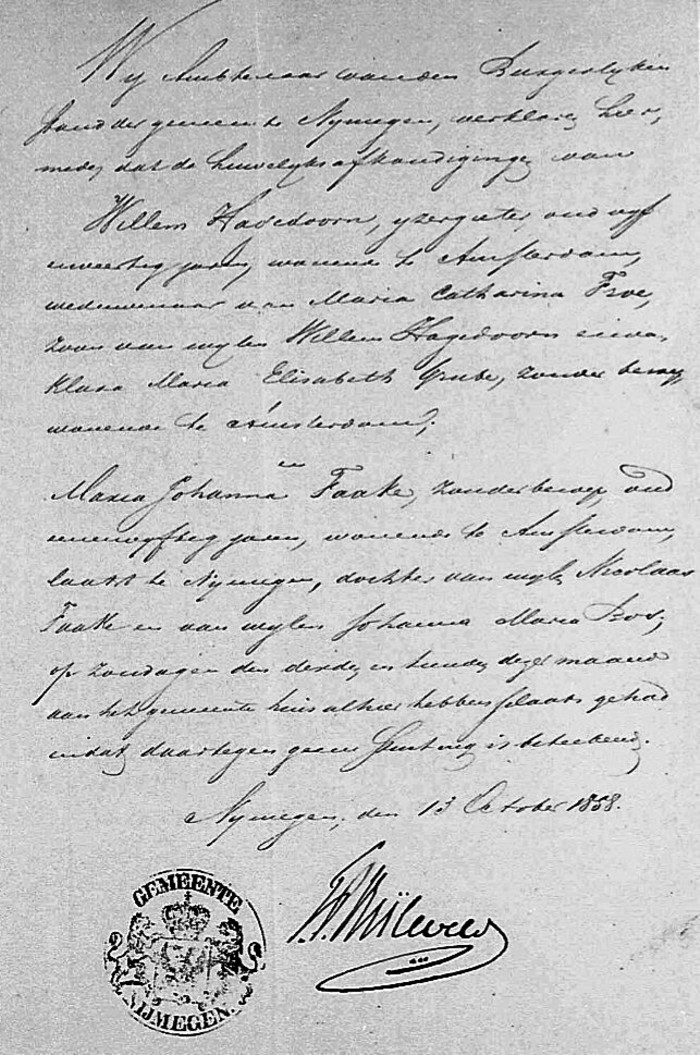 Wij Ambtenaar van den Burgerlyken
stand der gemeente Nymegen, verklaren hier,
mede, dat de huwelyks afkondigingen van
Willem Hagedoorn, yzergieter, oud vyf
en veertig jaren, wonende te Amsterdam,
weduwenaar van Maria Catharina
zoon van wylen Willem Hagedoorn en van
Klara Maria Elisabeth Grube, zonder beroep,
wonende te Amsterdam;
en
Maria Johanna Faake, zonder beroep, oud
eenenvyftig jaren, wonende te Amsterdam,
laatst te Nymegen, dochter van wylen Nicolaas
Faake en van wylen Johanna Maria Bos;
op zondagen den derden en tienden dezer maand
aan het gemeente huis alhier hebben plaats gehad
en dat daartegen geen stuiting is beteekend.
Nymegen, den 13 October 1858.
GEMEENTE
NIJMEGEN.